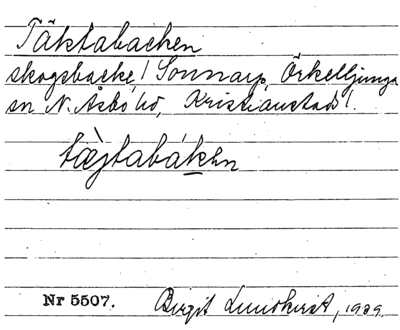 Täktabacken
skogsbacke! Sonnarp, Örkelljunga
sn N. Åsbo hd, Kristianstad l.
tæ̀jtabákɘn
Nr 5507. Birgit Lundkvist, 1929.